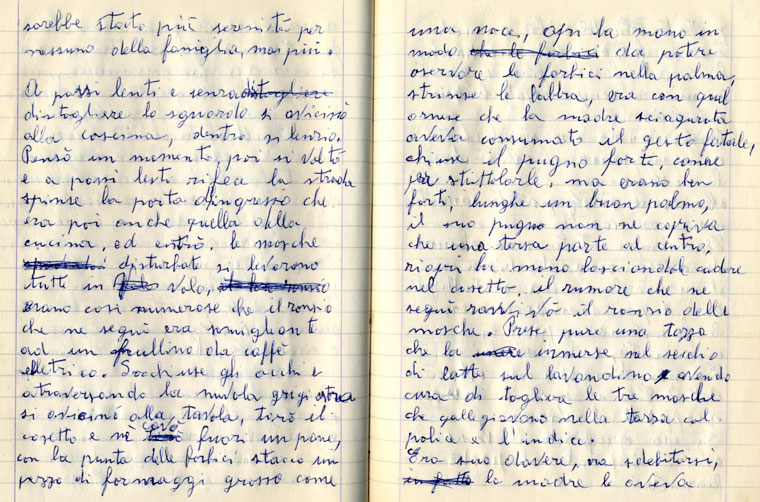 sarebbe stato più serenità per
nessuno della famiglia, mai più.
A passi lenti e senza distogliere
distogliere lo sguardo si avicinò
alla cascina, dentro silenzio.
Pensò un momento, poi si voltò
e a passi lesti rifece la strada
spinse la porta d'ingresso che
era poi anche quella della
cucina, ed entrò, le mosche
disturbate si levarono
tutte in volo,
erano così numerose che il ronsio
che ne seguì era somigliante
ad un frullino da caffè
elettrico. Socchiuse gli occhi e
atraversando la nuvola grigiastra
si avicinò alla tavola, tirò il
casetto e nè cavò fuori un pane,
con la punta delle forbici staccò un
pezzo di formaggi grosso come
una noce, aprì la mano in
modo che le forbici da potere
oservare le forbici nella palma,
strinse le labbra, era con quel
arnese che la madre sciagurata
aveva consumato il gesto fatale,
chiuse il pugno forte, come
per stritolarle, ma erano ben
forti, lunghe un buon palmo,
il suo pugno non ne copriva
che una tersa parte al centro,
riaprì la mano lasciandole cadere
nel casetto, il rumore che ne
seguì ravvivò il ronsio delle
mosche. Prese pure una tazza
che la immerse nel secchio
di latte sul lavandino avendo
cura di togliere le tre mosche
che gallegiavano nella tazza col
police e l'indice.
Era suo dovere, ora sdebitarsi,
la madre le aveva